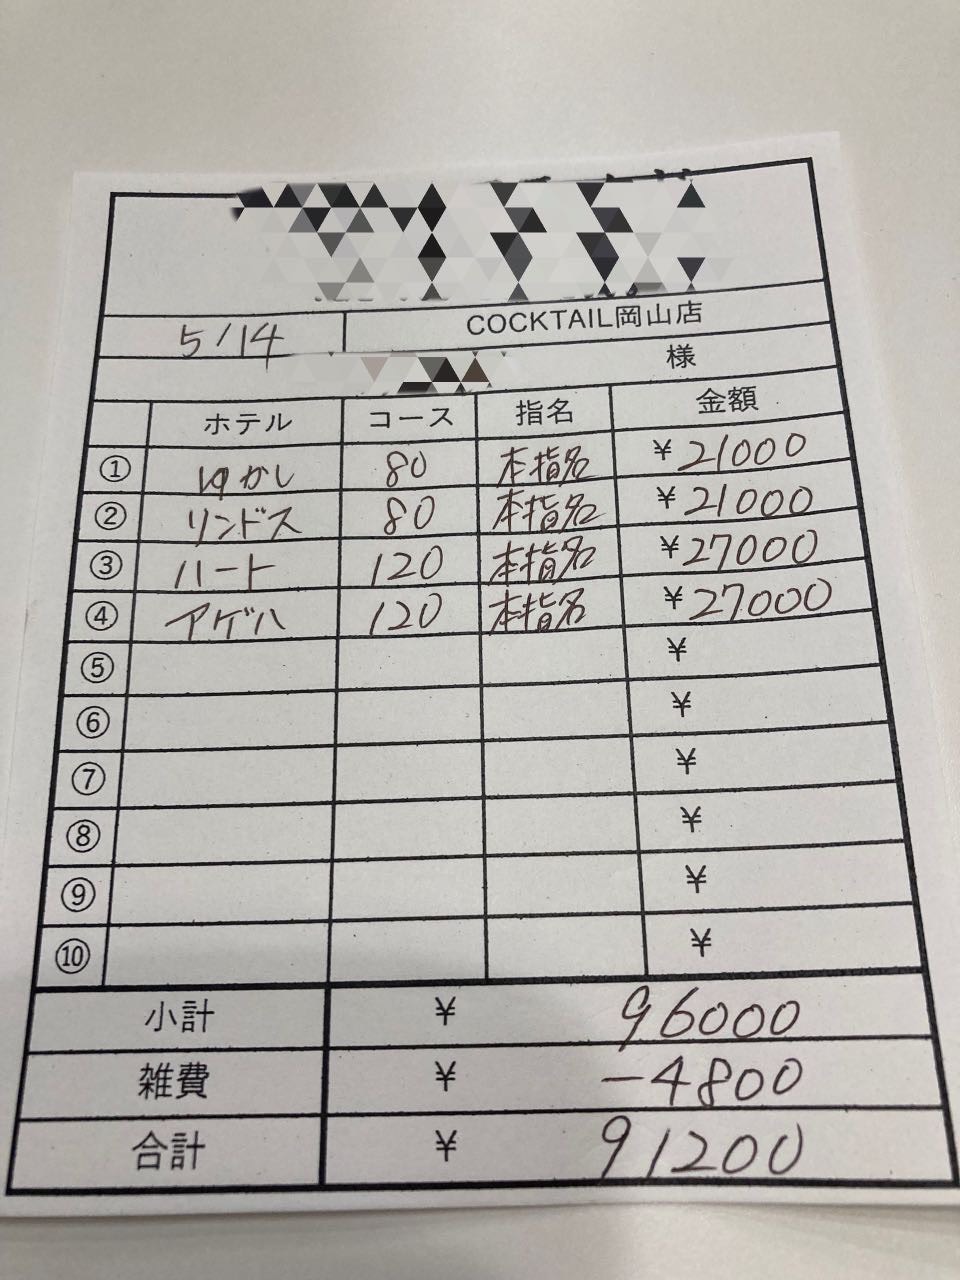 5/14 COCKTAIL岡山店
様
ホテル コース 指名 金額
① ゆかし 80 本指名 ¥21000
② リンドス 80 本指名 ¥21000
③ ハート 120 本指名 ¥27000
④ アゲハ 120 本指名 ¥27000
⑤ ¥
⑥ ¥
⑦ ¥
⑧ ¥
⑨ ¥
⑩ ¥
小計 ¥ 96000
雑費 ¥ -4800
合計 ¥ 91200